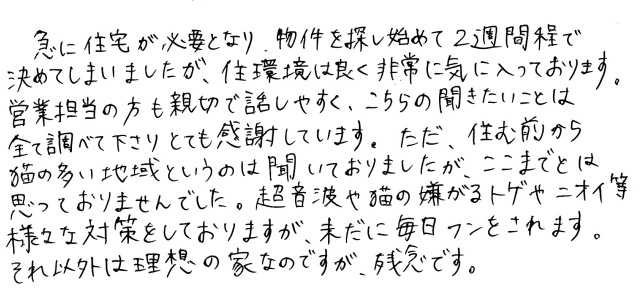 急に住宅が必要となり、物件を探し始めて2週間程で
決めてしまいましたが、住環境は良く非常に気に入っております。
営業担当の方も親切で話しやすく、こちらの聞きたいことは
全て調べて下さりとても感謝しています。ただ、住む前から
猫の多い地域というのは聞いておりましたが、ここまでとは
思っておりませんでした。超音波や猫の嫌がるトゲやニオイ等
様々な対策をしておりますが、未だに毎日フンをされます。
それ以外は理想の家なのですが、残念です。